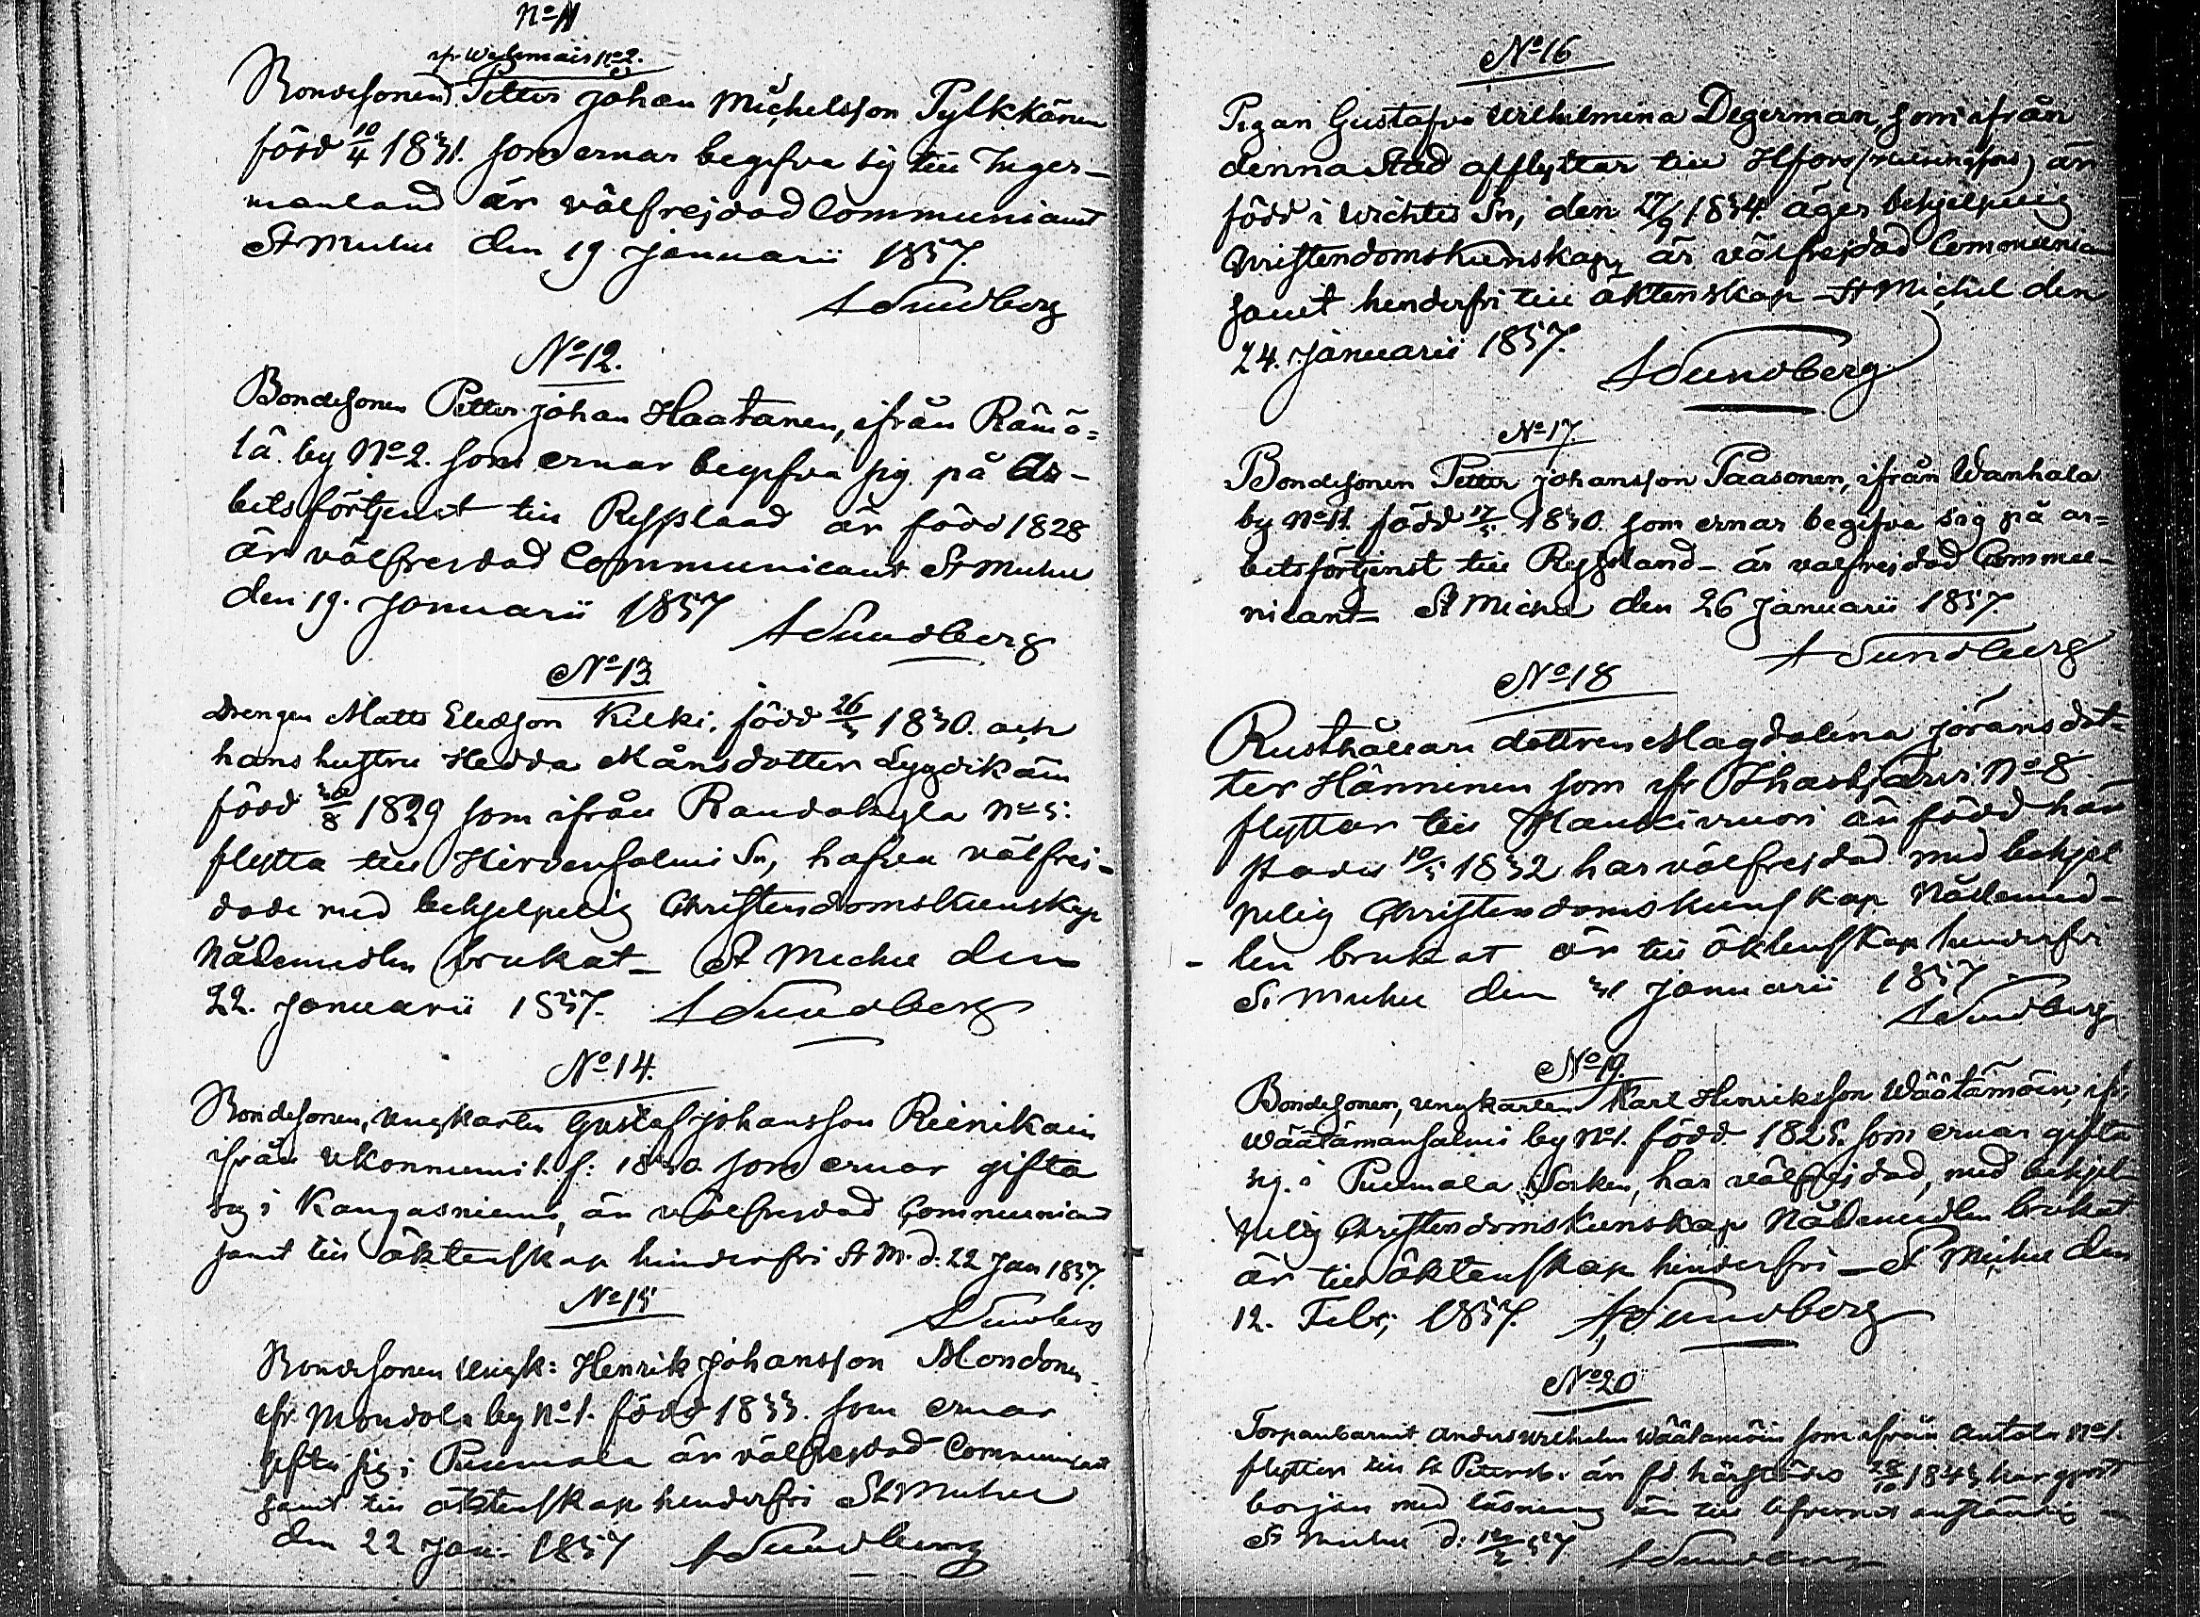 No 11
ifr Wehmais No 2.
Bondesonen Petter Johan Michelsson Pylkkänen
född 10/4 1831. som ernar begifva sig till Inger-
manland är välfrejdad Communicant
St Michel den 19 Januarii 1857.
A Sundberg
No 12.
Bondesonen Petter Johan Haatanen, ifrån Rämä=
lä by No 2. som ernar begifva sig på Ar-
betsförtjenst till Ryssland är född 1828
är välfrejdad Communicant St Michel
den 19. Januarii 1857
A Sundberg
No 13.
Drengen Matts Eliasson Kilki, född 26/5 1830. och
hans hustru Hedda Månsdotter Lyydikäin
född 30/8 1829 som ifrån Randakyla No 5:
flytta till Hirvensalmi Sn, hafva välfrej-
dade med behjelpelig Christendomskunskap
Nådemedlen brukat - St Michel den
22. Januarii 1857. A Sundberg
No 14.
Bondesonen, ungkarlen Gustaf Johansson Reinikain
ifrån Ukonniemi 1. f: 1830 som ernar gifta
sig i Kangasniemi, är välfrejdad Communicant
samt till äktenskap hinderfri St M. d. 22 Jan 1857.
A Sundberg
No 15
Bondesonen Ungk: Henrik Johansson Mondonen
ifr Mondola by No 1. född 1833. som ernar
gifta sig i Puumala är välfrejdad Communicant
samt till äktenskap hinderfri St Michel
den 22 Jan: 1857 A Sundberg
No 16
Pigan Gustafva Wilhelmina Degerman, som ifrån
denna Stad afflyttar till Hfors (Helsingfors) är
född i Wichtis Sn, den 27/9 1834. äger behjelpelig
Christendomskunskap, är välfrejdad Communican
samt hinderfri till äktenskap - St Michel den
24. Januarii 1857.
A Sundberg
No 17.
Bondesonen Petter Johansson Paasonen, ifrån Wanhala
by No 11. född 17/5 1830. som ernar begifva sig på ar=
betsförtjenst till Ryssland - är välfrejdad Commu-
nicant - St Michel den 26 Januarii 1857.
A Sundberg
No 18
Rusthållare dottren Magdalena Jöransdot-
ter Hänninen som ifr Ihastjärvi No 8.
flyttar till Haukivuori är född här
stades 10/5 1832 har välfrejdad med behjel
pelig Christendomskunskap Nådemed-
len brukat är till äktenskap hinderfri
St Michel den 31 Januarii 1857
A Sundberg
No 19.
Bondesonen, ungkarlen Karl Henriksson Wäätämöin, ifr.
Wäätämänsalmi by No 1. född 1825. som ernar gifta
sig i Puumala Socken, har välfrejdad, med behjel-
pelig Christendomskunskap Nådemedlen brukat
är till äktenskap hinderfri - St Michel den
12. Febr; 1857. A Sundberg
No 20
Torparbarnet Anders Wilhelm Wäätämöin som ifrån Antola No 1.
flyttar till St Petersb: är fd. härstädes 28/10 1843, har gjort
början med läsning är till anständig -
St Michel d: 12/2 57 A Sundberg